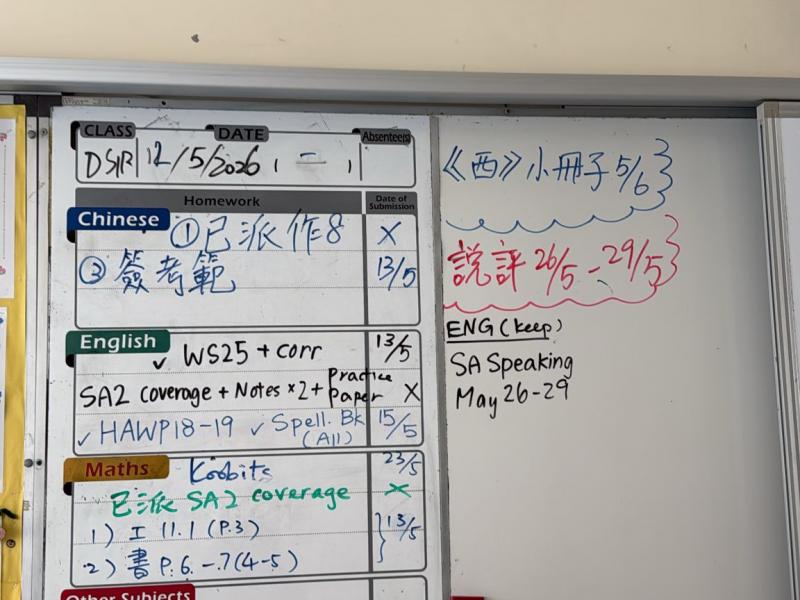 CLASS DATE Absentee(s)
12/5/2026 ( 二 )
Homework Date of Submission
Chinese
① 已派作8 X
② 簽考範 13/5
English
✓ WS25 + corr 13/5
SA2 coverage + Notes ×2 + Practice Paper X
✓ HAWP18-19 ✓ Spell. Bk (All) 15/5
Maths
Koobits 23/5
已派 SA2 coverage X
1) 工 11.1 (P.3) } 13/5
2) 書 P.6 -.7 (4-5)
Other Subjects
《西》小冊子 5/6
説評 26/5 - 29/5
ENG (keep)
SA Speaking
May 26-29